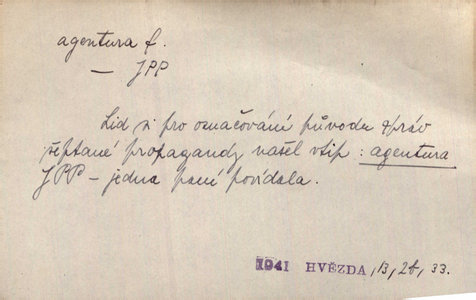 agentura f.
— JPP
Lid si pro označování původu zpráv
šeptané propagandy našel vtip: agentura
JPP – jedna paní povídala.
1941 HVĚZDA, 13, 28, 33.